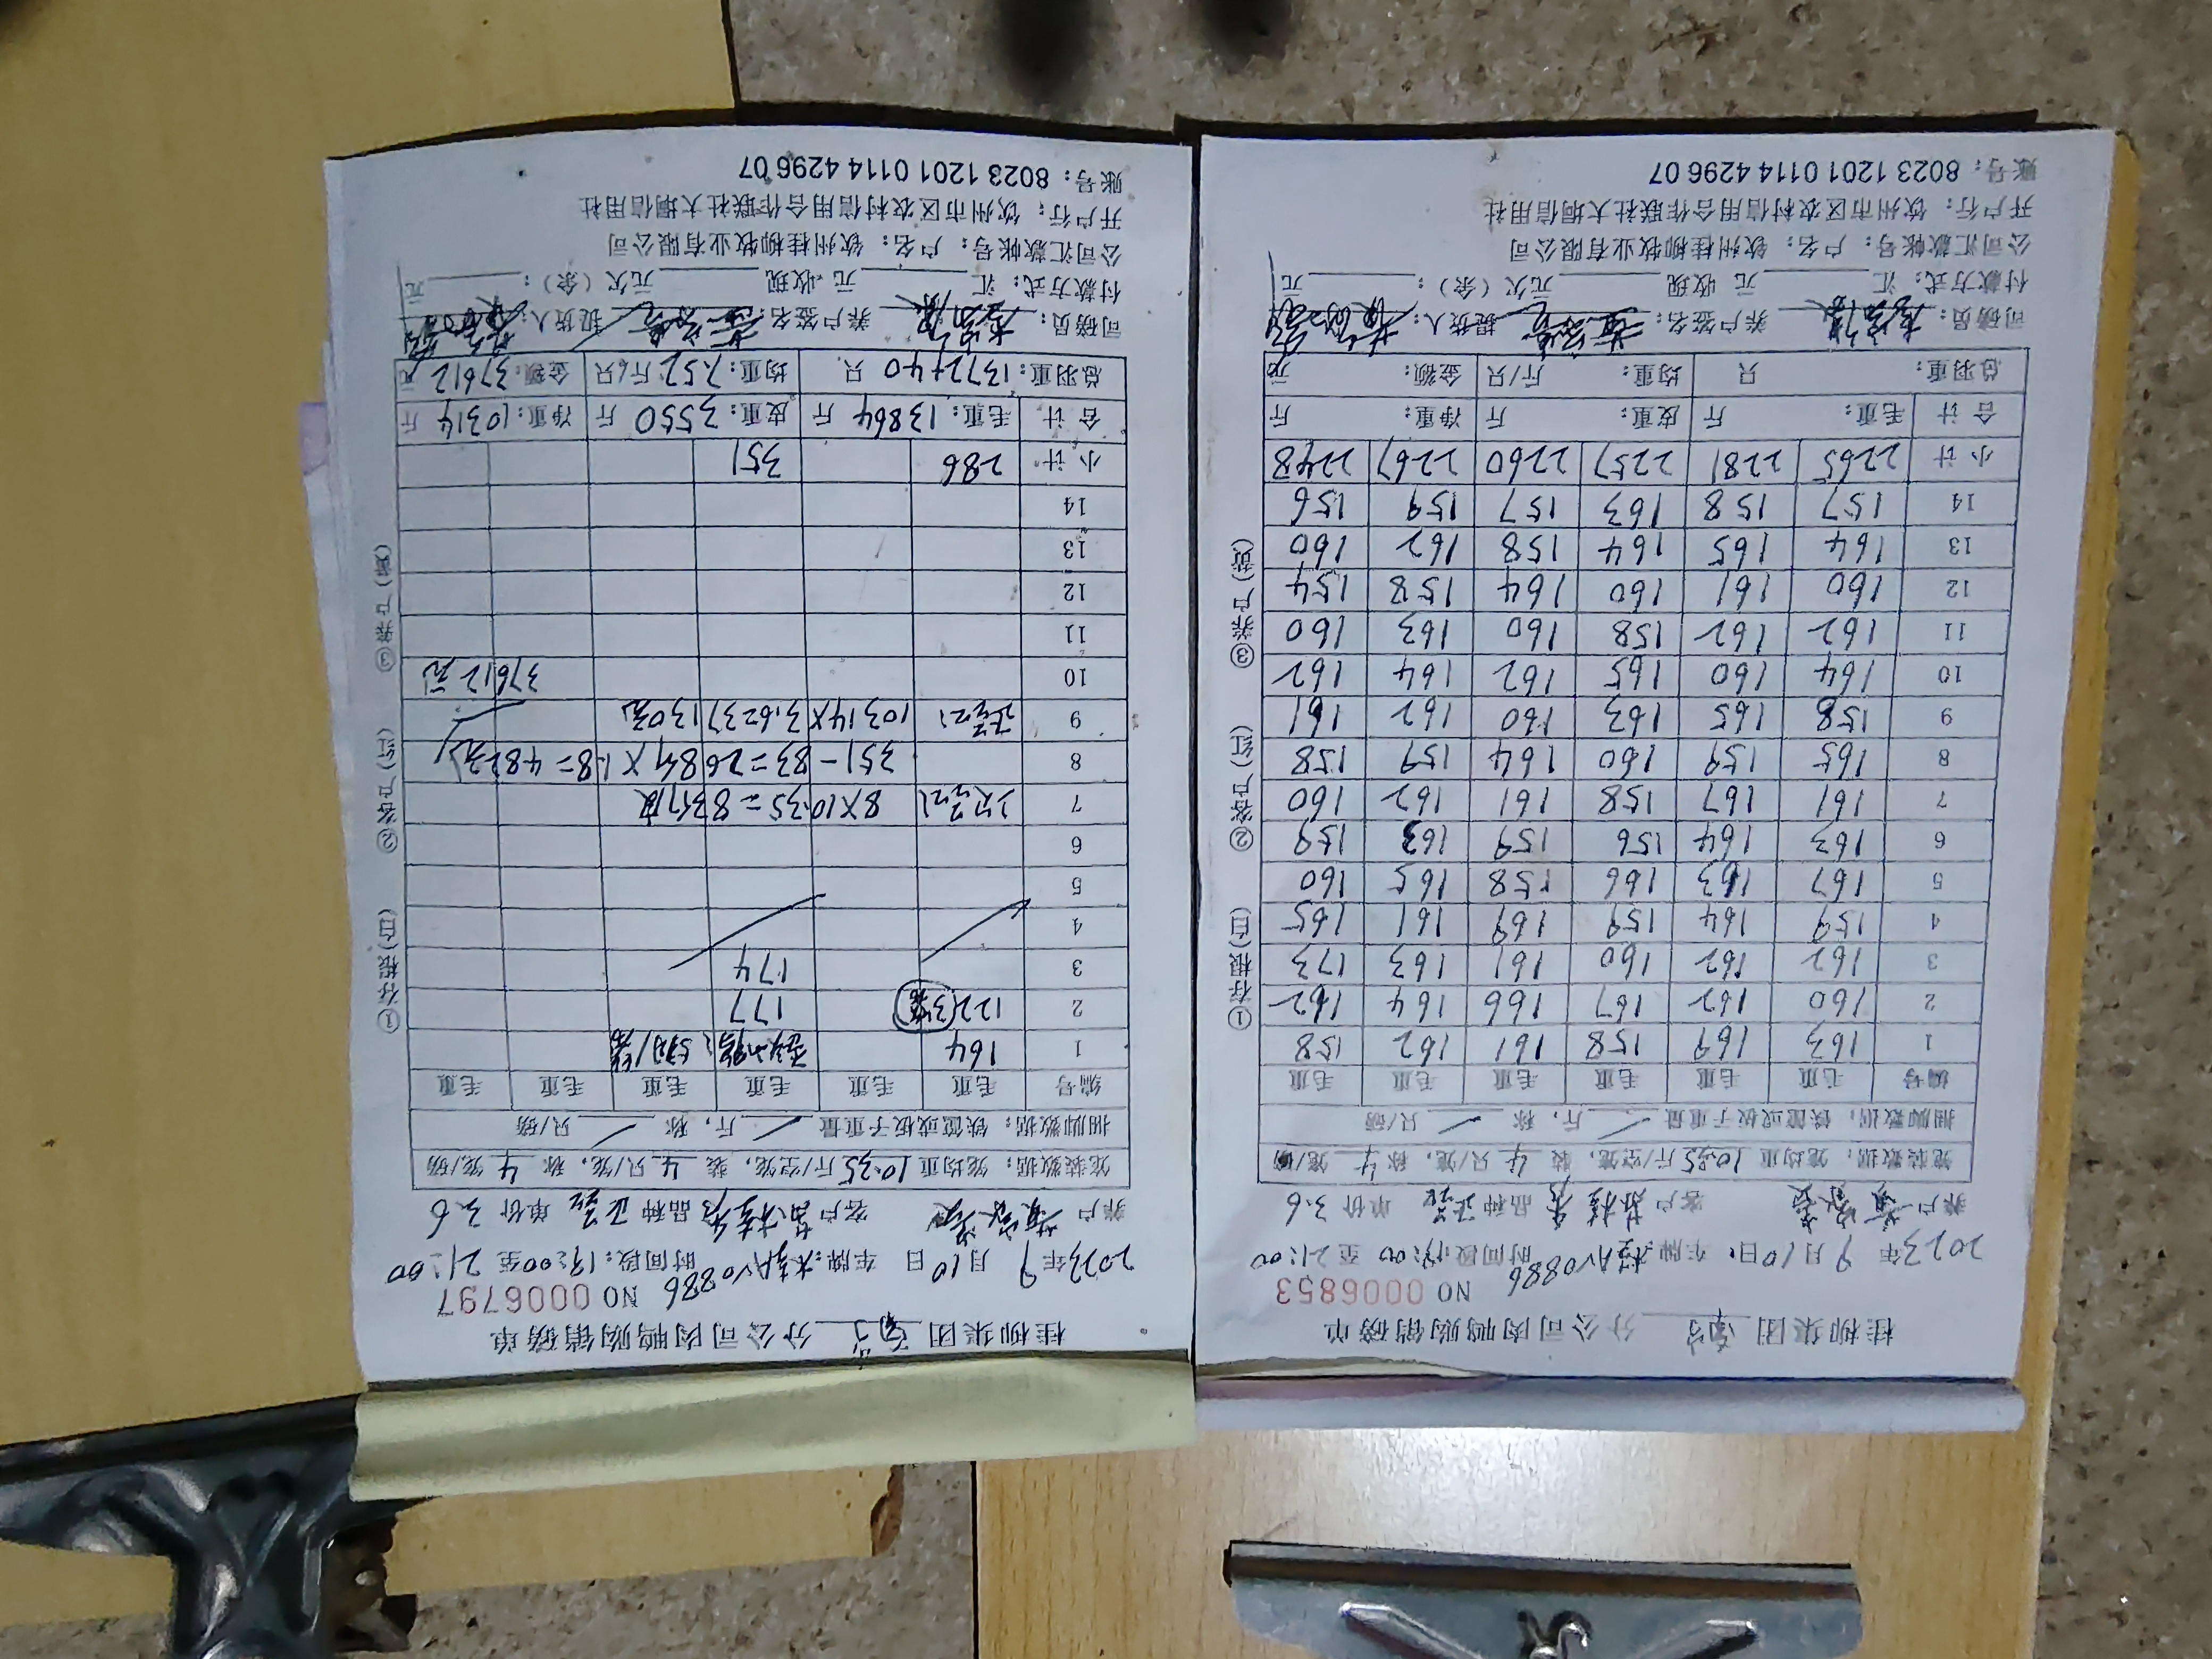 桂柳集团 分公司肉鸭购销磅单
NO 0006853
2023年 9月10日 车牌:桂AV0886 时间段 19:00 至 21:00
养户 客户 品种 正品 单价 3.6
笼装数据: 笼均重 10.35 斤/空笼, 装 4 只/笼, 称 4 笼/磅
捆脚数据: 铁筐或板子重量 / 斤, 称 / 只/磅
编号 毛重 毛重 毛重 毛重 毛重 毛重
1 163 169 158 161 162 158
2 160 162 167 166 164 162
3 162 162 160 161 163 173
4 159 164 159 169 161 165
5 167 163 166 158 165 160
6 163 164 156 159 163 159
7 161 167 158 161 162 160
8 165 159 160 164 159 158
9 158 165 163 160 162 161
10 164 160 165 162 164 162
11 162 162 158 160 163 160
12 160 161 160 164 158 154
13 164 165 164 158 162 160
14 157 158 163 157 159 156
小计 2265 2281 2257 2260 2267 2248
合计 毛重: 斤 皮重: 斤 净重: 斤
总羽重: 只 均重: 斤/只 金额: 元
司磅员: 养户签名: 提货人:
付款方式: 汇 元 收现 元欠(余): 元
公司汇款帐号: 户名: 钦州桂柳牧业有限公司
开户行: 钦州市区农村信用合作联社大垌信用社
账号: 8023 1201 0114 4296 07
①存根(白) ②客户(红) ③养户(黄)
桂柳集团 分公司肉鸭购销磅单
NO 0006797
2023年 9月10日 车牌:桂AV0886 时间段:19:00至 21:00
养户 客户 品种 正品 单价 3.6
笼装数据: 笼均重 10.35 斤/空笼, 装 4 只/笼, 称 4 笼/磅
捆脚数据: 铁筐或板子重量 / 斤, 称 / 只/磅
编号 毛重 毛重 毛重 毛重 毛重 毛重
1 164
2 122 (3笼) 177
3 174
4
5
6
7 8×10.35=83斤皮
8 351-83=268斤×1.8=482元
9 正品: 10314×3.6=37130元
10 37612元
11
12
13
14
小计 286 351
合计 毛重: 13864 斤 皮重: 3550 斤 净重: 10314 斤
总羽重: 1372+40 只 均重: 7.52 斤/只 金额: 37612 元
司磅员: 养户签名: 提货人:
付款方式: 汇 元 收现 元欠(余): 元
公司汇款帐号: 户名: 钦州桂柳牧业有限公司
开户行: 钦州市区农村信用合作联社大垌信用社
账号: 8023 1201 0114 4296 07
①存根(白) ②客户(红) ③养户(黄)